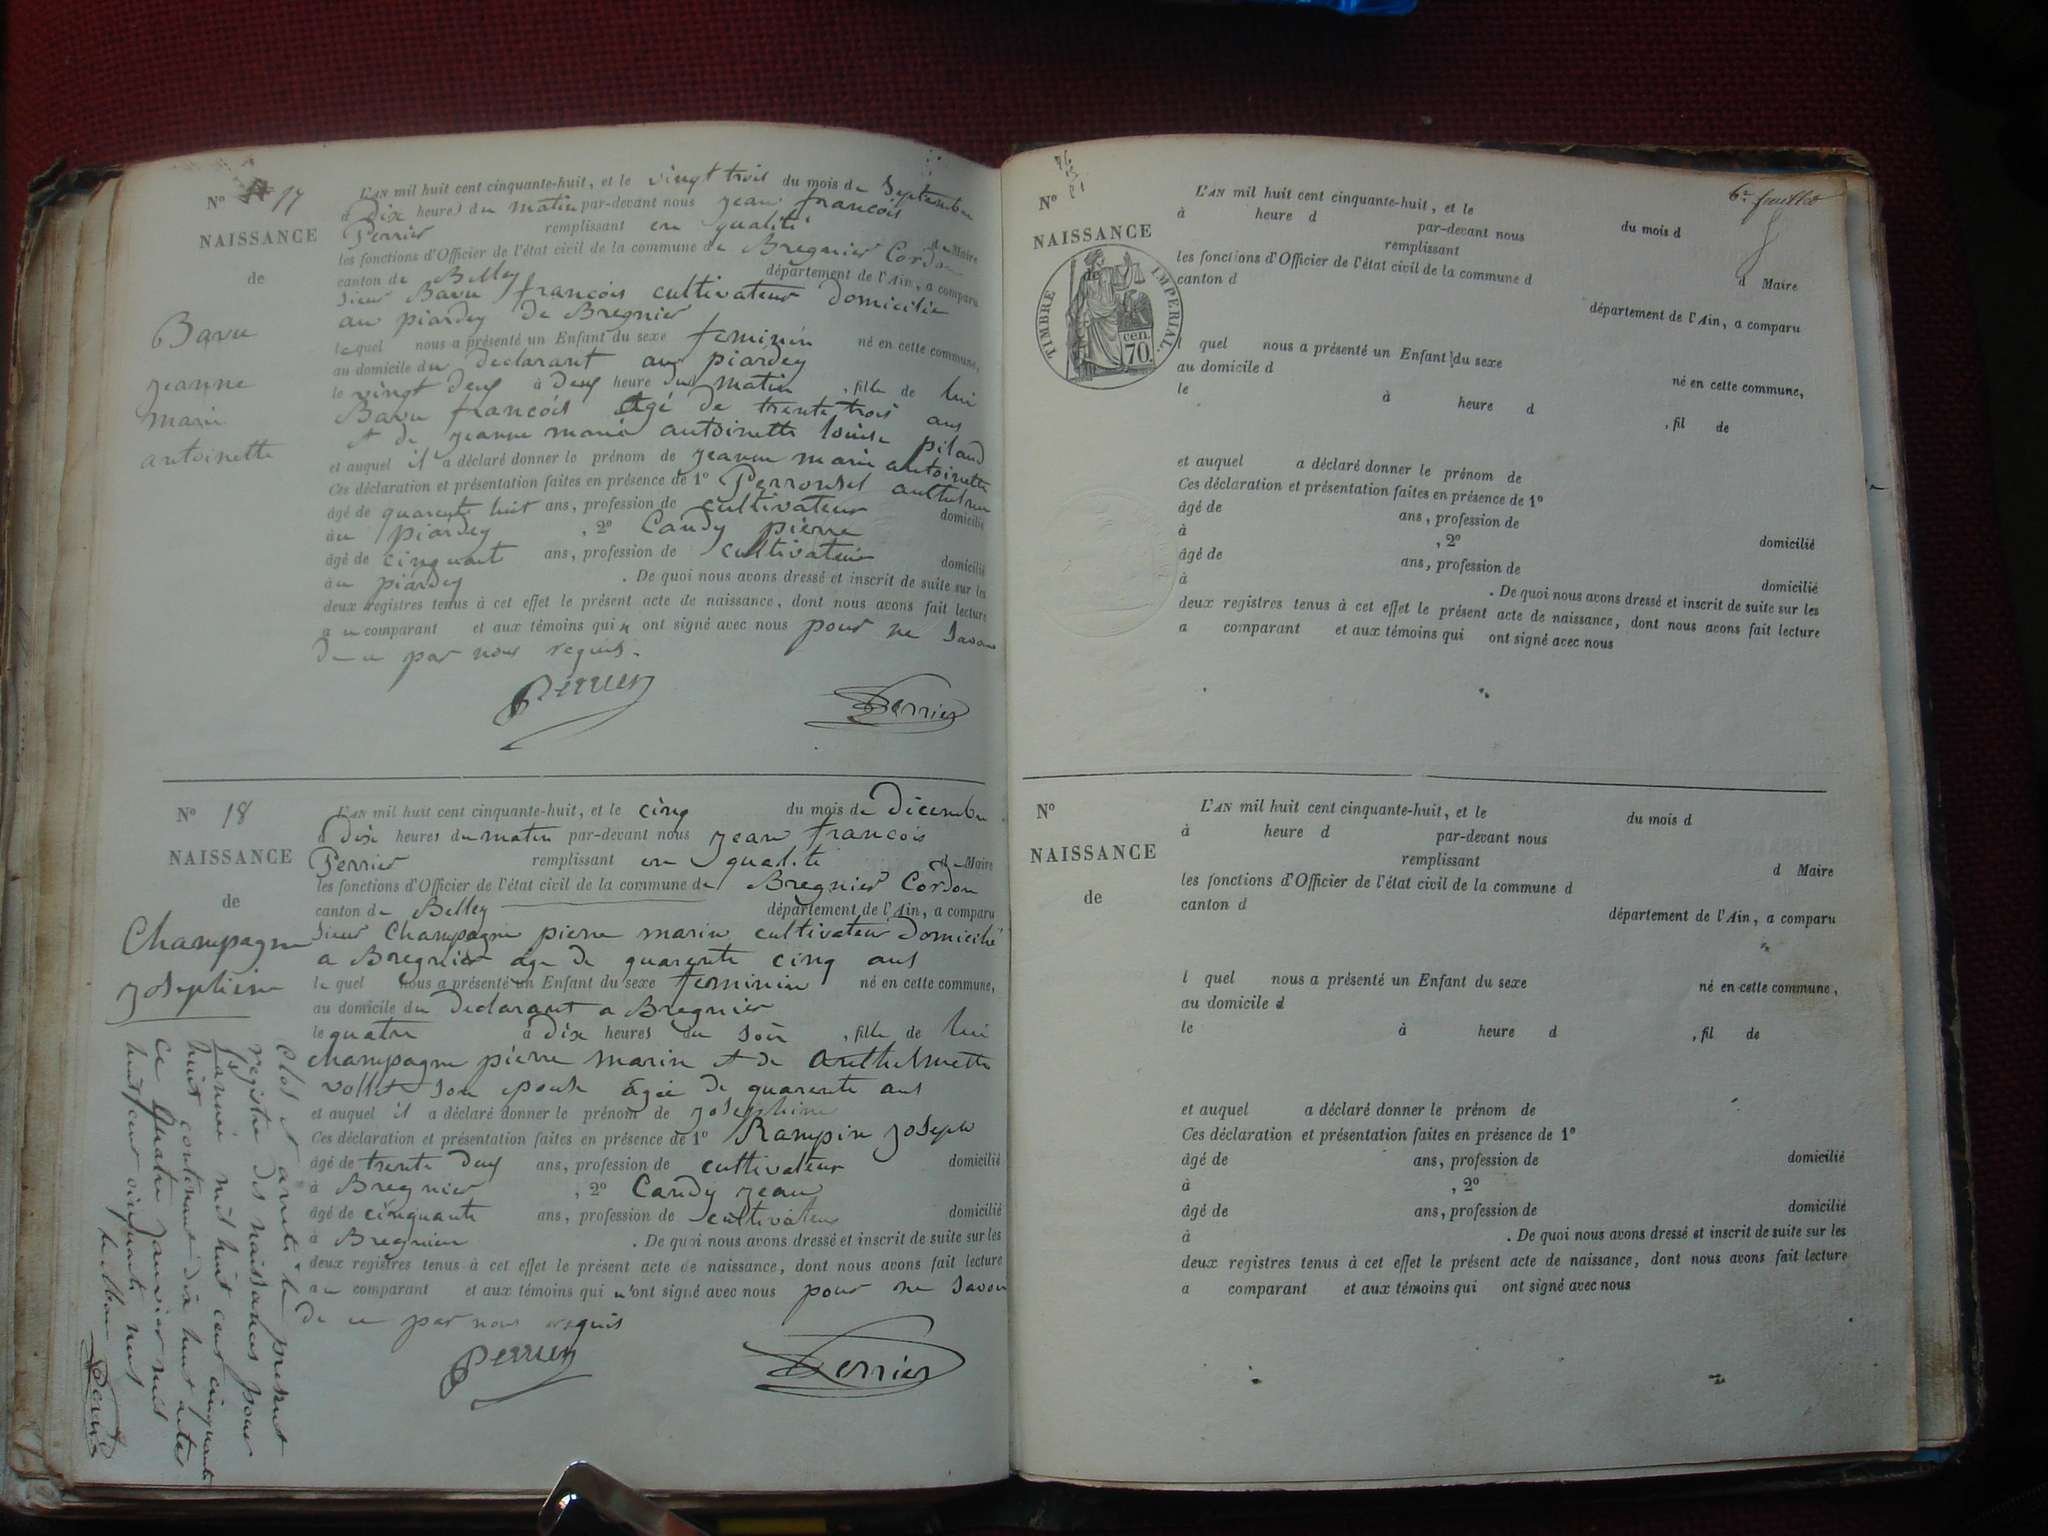 N° 17
NAISSANCE
de
Bavu
jeanne
marie
antoinette
L'AN mil huit cent cinquante-huit, et le vingt trois du mois de Septembre
à Dix heures du matin par-devant nous jean francois
Perrier remplissant en qualité de Maire
les fonctions d'Officier de l'état civil de la commune de Bregnier Cordon
canton de Belley département de l'Ain, a comparu
Sieur Bavu françois cultivateur domicilié
au piardey de Bregnier
lequel nous a présenté un Enfant du sexe feminin né en cette commune,
au domicile du declarant au piardey
le vingt deux à deux heure du matin, fille de lui
Bavu francois agé de trente trois ans
et de jeanne marie antoinette louise pilaud
et auquel il a déclaré donner le prénom de jeanne marie antoinette
Ces déclaration et présentation faites en présence de 1° Perrousel anthelme
âgé de quarente huit ans, profession de cultivateur domicilié
au piardey, 2° Candy pierre
âgé de cinquant ans, profession de cultivateur domicilié
au piardey. De quoi nous avons dressé et inscrit de suite sur les
deux registres tenus à cet effet le présent acte de naissance, dont nous avons fait lecture
au comparant et aux témoins qui n ont signé avec nous pour ne savoir
de ce par nous requis.
Perrier Perrier
N° 18
NAISSANCE
de
Champagne
josephine
L'AN mil huit cent cinquante-huit, et le cinq du mois de Décembre
à Dix heures du matin par-devant nous jean francois
Perrier remplissant en qualité de Maire
les fonctions d'Officier de l'état civil de la commune de Bregnier Cordon
canton de Belley département de l'Ain, a comparu
Sieur Champagne pierre marin cultivateur domicilié
a Bregnier age de quarente cinq ans
lequel nous a présenté un Enfant du sexe feminin né en cette commune,
au domicile du Declarant a Bregnier
le quatre à dix heures du soir, fille de lui
champagne pierre marin et de anthelmette
vollet son epouse âgée de quarente ans
et auquel il a déclaré donner le prénom de josephine
Ces déclaration et présentation faites en présence de 1° Rampin joseph
âgé de trente deux ans, profession de cultivateur domicilié
à Bregnier, 2° Candy jean
âgé de cinquante ans, profession de cultivateur domicilié
à Bregnier. De quoi nous avons dressé et inscrit de suite sur les
deux registres tenus à cet effet le présent acte de naissance, dont nous avons fait lecture
au comparant et aux témoins qui n'ont signé avec nous pour ne savoir
de ce par nous requis
Perrier Perrier
Clos et arrêté le présent
registre des naissances pour
l'année mil huit cent cinquante
huit contenant dix huit actes
ce quatre janvier mil
huit cent cinquante neuf
le Maire Perrier
6e feuillet
N°
NAISSANCE
de
TIMBRE IMPERIAL.
70 cen.
L'AN mil huit cent cinquante-huit, et le du mois d
à heure d par-devant nous
remplissant d Maire
les fonctions d'Officier de l'état civil de la commune d
canton d département de l'Ain, a comparu
l quel nous a présenté un Enfant du sexe né en cette commune,
au domicile d
le à heure d , fil de
et auquel a déclaré donner le prénom de
Ces déclaration et présentation faites en présence de 1°
âgé de ans, profession de domicilié
à , 2°
âgé de ans, profession de domicilié
à . De quoi nous avons dressé et inscrit de suite sur les
deux registres tenus à cet effet le présent acte de naissance, dont nous avons fait lecture
a comparant et aux témoins qui ont signé avec nous
N°
NAISSANCE
de
L'AN mil huit cent cinquante-huit, et le du mois d
à heure d par-devant nous
remplissant d Maire
les fonctions d'Officier de l'état civil de la commune d
canton d département de l'Ain, a comparu
l quel nous a présenté un Enfant du sexe né en cette commune,
au domicile d
le à heure d , fil de
et auquel a déclaré donner le prénom de
Ces déclaration et présentation faites en présence de 1°
âgé de ans, profession de domicilié
à , 2°
âgé de ans, profession de domicilié
à . De quoi nous avons dressé et inscrit de suite sur les
deux registres tenus à cet effet le présent acte de naissance, dont nous avons fait lecture
a comparant et aux témoins qui ont signé avec nous